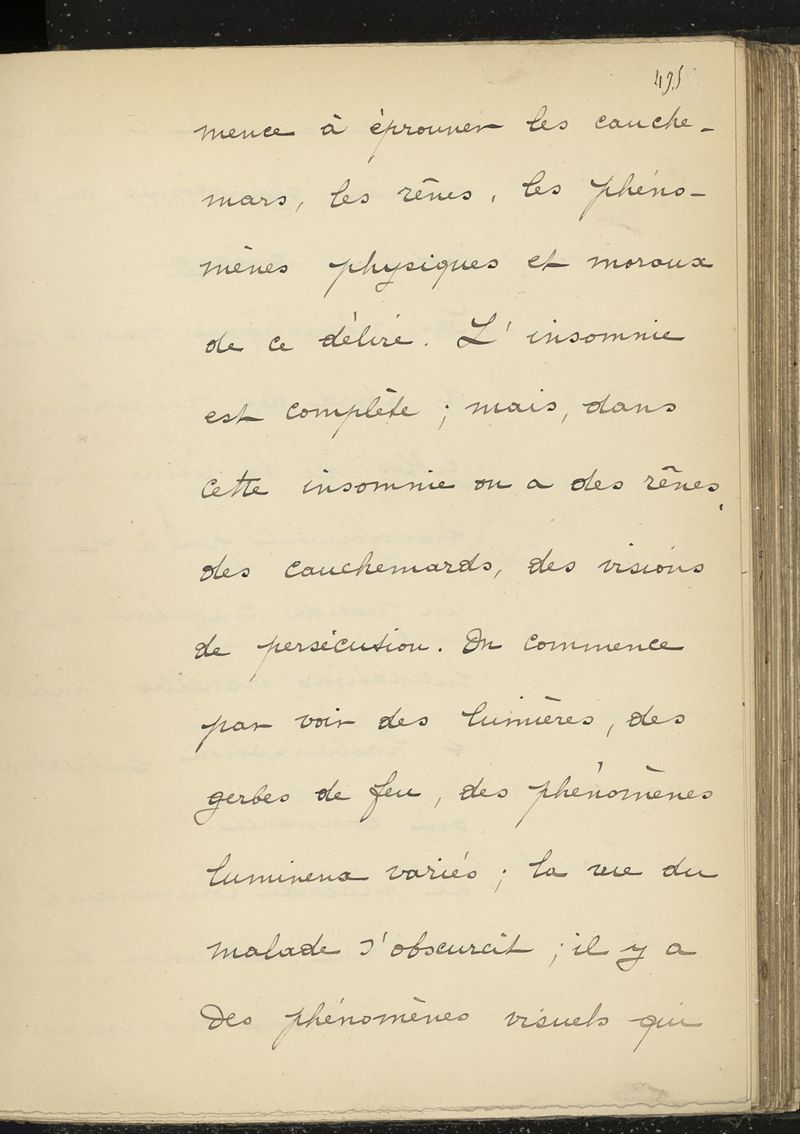 495
mence à éprouver les cauche-
mars, les rêves, les phéno-
mènes physiques et moraux
de ce délire. L'insomnie
est complète ; mais, dans
cette insomnie on a des rêves,
des cauchemards, des visions
de persécution. On commence
par voir des lumières, des
gerbes de feu, des phénomènes
lumineux variés ; la vue du
malade s'obscurcit ; il y a
des phénomènes visuels qui